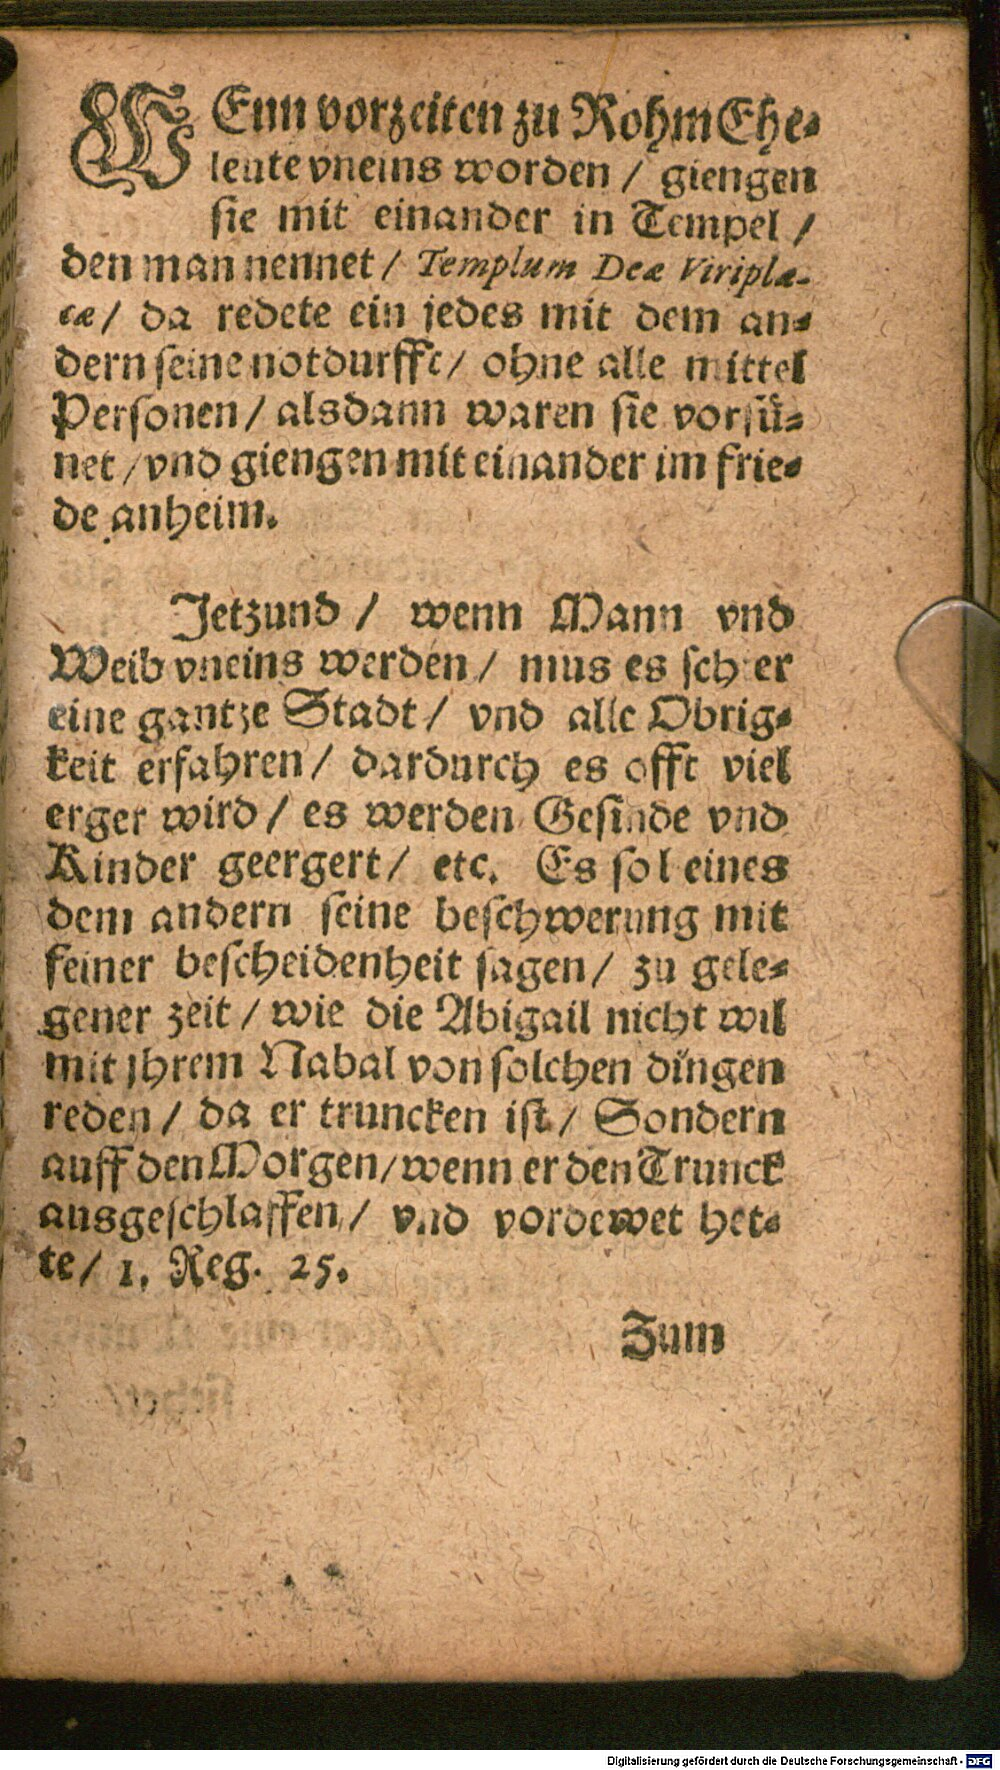 WEnn vorzeiten zu Rohm Ehe⸗
leute vneins worden / giengen
sie mit einander in Tempel /
den man nennet / Templum Deæ Viriplæ-
cæ / da redete ein jedes mit dem an⸗
dern seine notdurfft / ohne alle mittel
Personen / alsdann waren sie vorsü⸗
net / vnd giengen mit einander im frie⸗
de anheim.
Jetzund / wenn Mann vnd
Weib vneins werden / mus es schier
eine gantze Stadt / vnd alle Obrig⸗
keit erfahren / dardurch es offt viel
erger wird / es werden Gesinde vnd
Kinder geergert / etc. Es sol eines
dem andern seine beschwerung mit
feiner bescheidenheit sagen / zu gele⸗
gener zeit / wie die Abigail nicht wil
mit jhrem Nabal von solchen dingen
reden / da er truncken ist / Sondern
auff den Morgen / wenn er den Trunck
ausgeschlaffen / vnd vordewet het⸗
te / 1. Reg. 25.
Zum
Digitalisierung gefördert durch die Deutsche Forschungsgemeinschaft - DFG